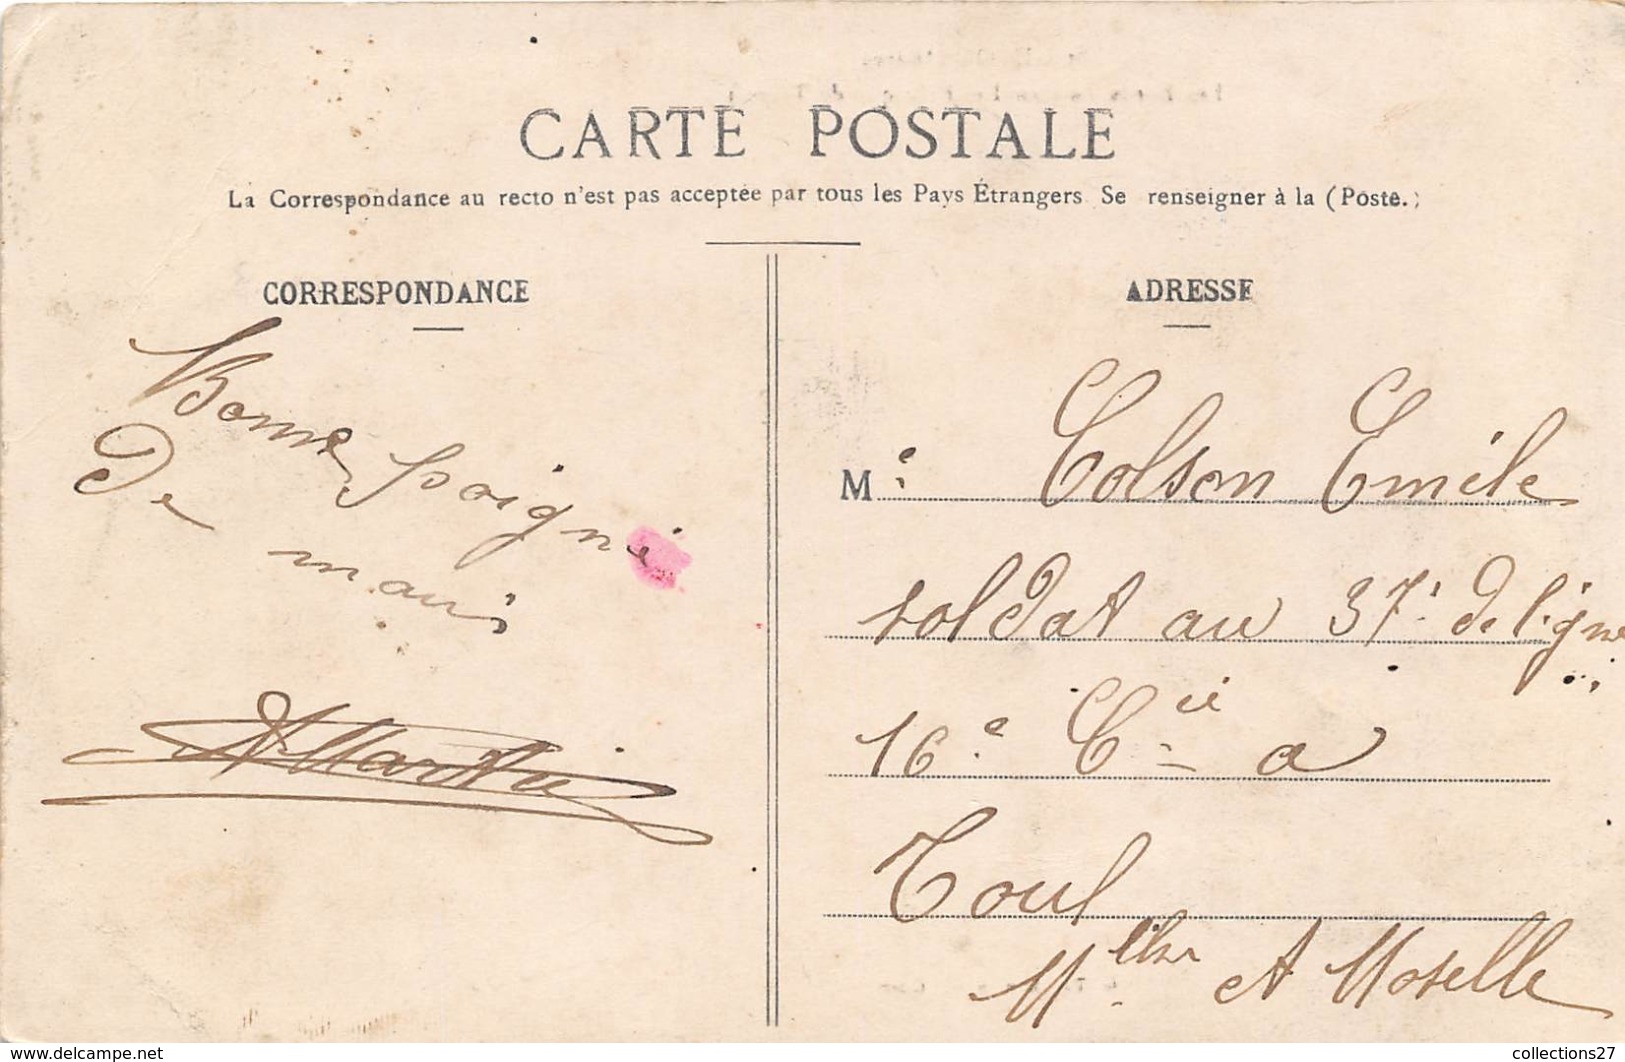 CARTE POSTALE
La Correspondance au recto n'est pas acceptée par tous les Pays Étrangers Se renseigner à la (Poste.)
CORRESPONDANCE
Bonne poigné
De main
AMartin
ADRESSE
M. Colson Emile
soldat au 37e de ligne
16e Cie a
Toul
Mthe et Moselle
www.delcampe.net
collections27